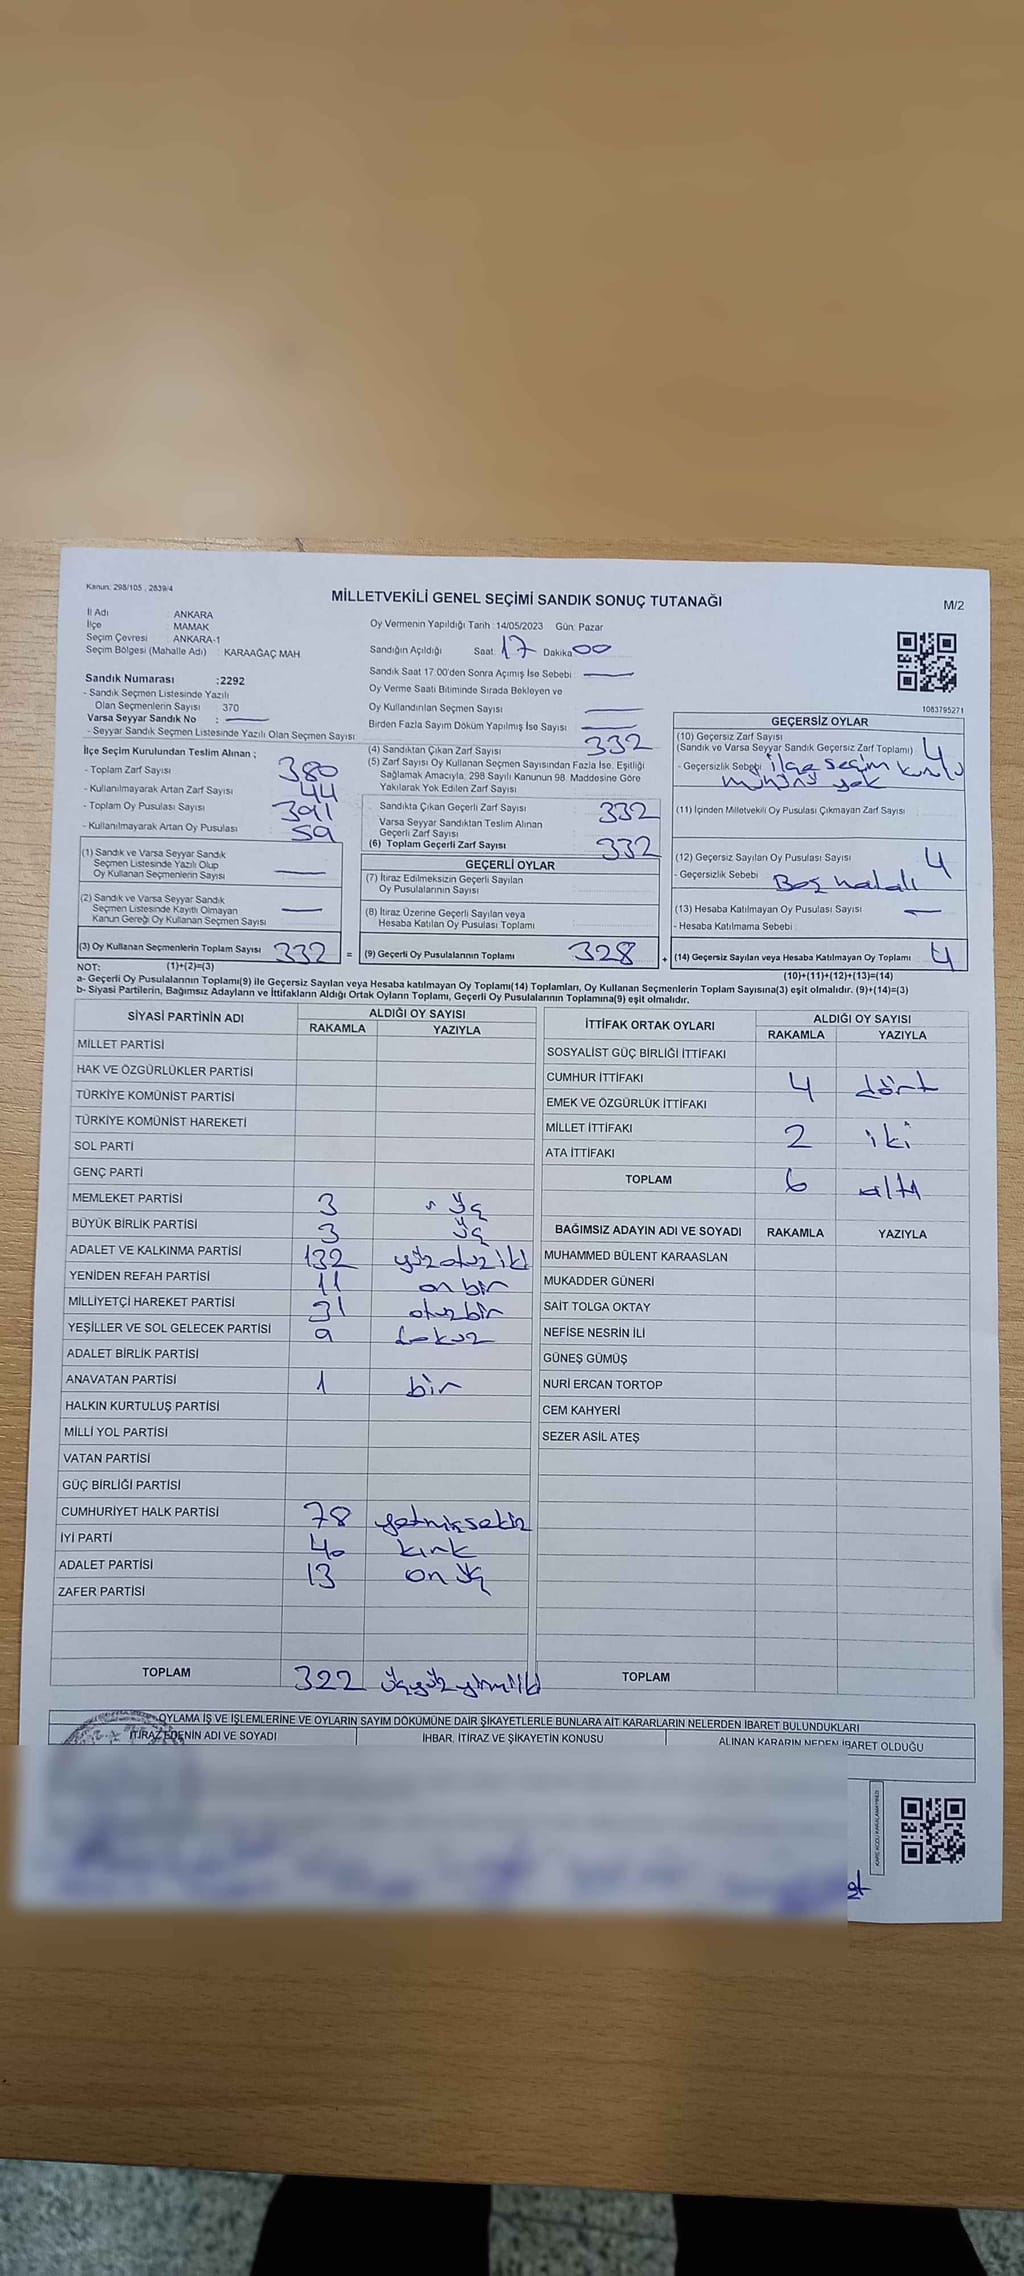 Kanun: 298/105 , 2839/4
MİLLETVEKİLİ GENEL SEÇİMİ SANDIK SONUÇ TUTANAĞI
M/2
İl Adı ANKARA
İlçe MAMAK
Seçim Çevresi : ANKARA-1
Seçim Bölgesi (Mahalle Adı) : KARAAĞAÇ MAH.
Oy Vermenin Yapıldığı Tarih :14/05/2023 Gün: Pazar
Sandığın Açıldığı Saat 17 Dakika 00
Sandık Saat 17:00'den Sonra Açımış İse Sebebi
Oy Verme Saati Bitiminde Sırada Bekleyen ve
Oy Kullandırılan Seçmen Sayısı
Birden Fazla Sayım Döküm Yapılmış İse Sayısı
1083795271
Sandık Numarası :2292
- Sandık Seçmen Listesinde Yazılı
Olan Seçmenlerin Sayısı 370
Varsa Seyyar Sandık No :
- Seyyar Sandık Seçmen Listesinde Yazılı Olan Seçmen Sayısı
İlçe Seçim Kurulundan Teslim Alınan ;
- Toplam Zarf Sayısı 380
- Kullanılmayarak Artan Zarf Sayısı 44
- Toplam Oy Pusulası Sayısı 391
- Kullanılmayarak Artan Oy Pusulası 59
(1) Sandık ve Varsa Seyyar Sandık
Seçmen Listesinde Yazılı Olup
Oy Kullanan Seçmenlerin Sayısı
(2) Sandık ve Varsa Seyyar Sandık
Seçmen Listesinde Kayıtlı Olmayan
Kanun Gereği Oy Kullanan Seçmen Sayısı
(3) Oy Kullanan Seçmenlerin Toplam Sayısı 332
(1)+(2)=(3)
(4) Sandıktan Çıkan Zarf Sayısı 332
(5) Zarf Sayısı Oy Kullanan Seçmen Sayısından Fazla İse, Eşitliği
Sağlamak Amacıyla, 298 Sayılı Kanunun 98. Maddesine Göre
Yakılarak Yok Edilen Zarf Sayısı
Sandıkta Çıkan Geçerli Zarf Sayısı 332
Varsa Seyyar Sandıktan Teslim Alınan
Geçerli Zarf Sayısı
(6) Toplam Geçerli Zarf Sayısı 332
GEÇERLİ OYLAR
(7) İtiraz Edilmeksizin Geçerli Sayılan
Oy Pusulalarının Sayısı
(8) İtiraz Üzerine Geçerli Sayılan veya
Hesaba Katılan Oy Pusulası Toplamı
= (9) Geçerli Oy Pusulalarının Toplamı 328 +
GEÇERSİZ OYLAR
(10) Geçersiz Zarf Sayısı
(Sandık ve Varsa Seyyar Sandık Geçersiz Zarf Toplamı) 4
- Geçersizlik Sebebi ilçe seçim kurulu
mührü yok
(11) İçinden Milletvekili Oy Pusulası Çıkmayan Zarf Sayısı
(12) Geçersiz Sayılan Oy Pusulası Sayısı 4
- Geçersizlik Sebebi Boş hatalı
(13) Hesaba Katılmayan Oy Pusulası Sayısı
- Hesaba Katılmama Sebebi
(14) Geçersiz Sayılan veya Hesaba Katılmayan Oy Toplamı 4
(10)+(11)+(12)+(13)=(14)
NOT:
a- Geçerli Oy Pusulalarının Toplamı(9) ile Geçersiz Sayılan veya Hesaba katılmayan Oy Toplamı(14) Toplamları, Oy Kullanan Seçmenlerin Toplam Sayısına(3) eşit olmalıdır. (9)+(14)=(3)
b- Siyasi Partilerin, Bağımsız Adayların ve İttifakların Aldığı Ortak Oyların Toplamı, Geçerli Oy Pusulalarının Toplamına(9) eşit olmalıdır.
SİYASİ PARTİNİN ADI ALDIĞI OY SAYISI
RAKAMLA YAZIYLA
MİLLET PARTİSİ
HAK VE ÖZGÜRLÜKLER PARTİSİ
TÜRKİYE KOMÜNİST PARTİSİ
TÜRKİYE KOMÜNİST HAREKETİ
SOL PARTİ
GENÇ PARTİ
MEMLEKET PARTİSİ 3 üç
BÜYÜK BİRLİK PARTİSİ 3 üç
ADALET VE KALKINMA PARTİSİ 132 yüzotuziki
YENİDEN REFAH PARTİSİ 11 on bir
MİLLİYETÇİ HAREKET PARTİSİ 31 otuzbir
YEŞİLLER VE SOL GELECEK PARTİSİ 9 dokuz
ADALET BİRLİK PARTİSİ
ANAVATAN PARTİSİ 1 bir
HALKIN KURTULUŞ PARTİSİ
MİLLİ YOL PARTİSİ
VATAN PARTİSİ
GÜÇ BİRLİĞİ PARTİSİ
CUMHURİYET HALK PARTİSİ 78 yetmişsekiz
İYİ PARTİ 40 kırk
ADALET PARTİSİ 13 on üç
ZAFER PARTİSİ
TOPLAM 322 üçyüzyirmiiki
İTTİFAK ORTAK OYLARI ALDIĞI OY SAYISI
RAKAMLA YAZIYLA
SOSYALİST GÜÇ BİRLİĞİ İTTİFAKI
CUMHUR İTTİFAKI 4 dört
EMEK VE ÖZGÜRLÜK İTTİFAKI
MİLLET İTTİFAKI 2 iki
ATA İTTİFAKI
TOPLAM 6 altı
BAĞIMSIZ ADAYIN ADI VE SOYADI RAKAMLA YAZIYLA
MUHAMMED BÜLENT KARAASLAN
MUKADDER GÜNERİ
SAİT TOLGA OKTAY
NEFİSE NESRİN İLİ
GÜNEŞ GÜMÜŞ
NURİ ERCAN TORTOP
CEM KAHYERİ
SEZER ASİL ATEŞ
TOPLAM
OYLAMA İŞ VE İŞLEMLERİNE VE OYLARIN SAYIM DÖKÜMÜNE DAİR ŞİKAYETLERLE BUNLARA AİT KARARLARIN NELERDEN İBARET BULUNDUKLARI
İTİRAZ EDENİN ADI VE SOYADI İHBAR, İTİRAZ VE ŞİKAYETİN KONUSU ALINAN KARARIN NEDEN İBARET OLDUĞU